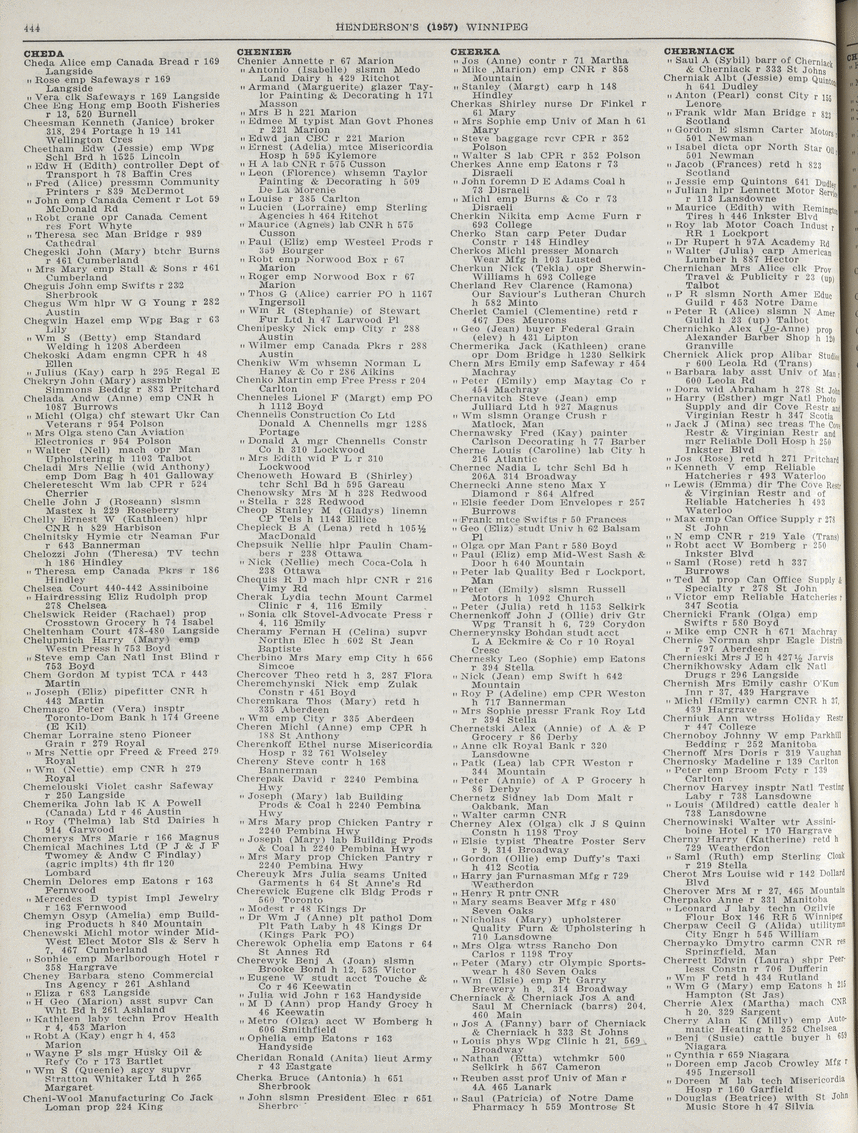 444
HENDERSON'S (1957) WINNIPEG
CHEDA
Cheda Alice emp Canada Bread r 169
Langside
" Rose emp Safeways r 169
Langside
" Vera clk Safeways r 169 Langside
Chee Eng Hong emp Booth Fisheries
r 13, 520 Burnell
Cheesman Kenneth (Janice) broker
318, 294 Portage h 19 141
Wellington Cres
Cheetham Edw (Jessie) emp Wpg
Schl Brd h 1525 Lincoln
" Edw H (Edith) controller Dept of
Transport h 78 Baffin Cres
" Fred (Alice) pressmn Community
Printers r 839 McDermot
" John emp Canada Cement r Lot 59
McDonald Rd
" Robt crane opr Canada Cement
res Fort Whyte
" Theresa sec Man Bridge r 989
Cathedral
Chegeski John (Mary) btchr Burns
r 461 Cumberland
" Mrs Mary emp Stall & Sons r 461
Cumberland
Cheguis John emp Swifts r 232
Sherbrook
Chegus Wm hlpr W G Young r 282
Austin
Chegwin Hazel emp Wpg Bag r 63
Lily
" Wm S (Betty) emp Standard
Welding h 1208 Aberdeen
Chekoski Adam engmn CPR h 48
Ellen
" Julius (Kay) carp h 295 Regal E
Chekryn John (Mary) assmblr
Simmons Beddg r 883 Pritchard
Chelada Andw (Anne) emp CNR h
1087 Burrows
" Michl (Olga) chf stewart Ukr Can
Veterans r 954 Polson
" Mrs Olga steno Can Aviation
Electronics r 954 Polson
" Walter (Nell) mach opr Man
Upholstering h 1103 Talbot
Cheladi Mrs Nellie (wid Anthony)
emp Dom Bag h 401 Galloway
Cheleretescht Wm lab CPR r 524
Cherrier
Chelle John J (Roseann) slsmn
Mastex h 229 Roseberry
Chelly Ernest W (Kathleen) hlpr
CNR h 829 Harbison
Chelnitsky Hymie ctr Neaman Fur
r 643 Bannerman
Chelozzi John (Theresa) TV techn
h 186 Hindley
" Theresa emp Canada Pkrs r 186
Hindley
Chelsea Court 440-442 Assiniboine
" Hairdressing Eliz Rudolph prop
278 Chelsea
Chelswick Reider (Rachael) prop
Crosstown Grocery h 74 Isabel
Cheltenham Court 478-480 Langside
Chelupmich Harry (Mary) emp
Westn Press h 753 Boyd
" Steve emp Can Natl Inst Blind r
753 Boyd
Chem Gordon M typist TCA r 443
Martin
" Joseph (Eliz) pipefitter CNR h
443 Martin
Chemago Peter (Vera) insptr
Toronto-Dom Bank h 174 Greene
(E Kil)
Chemar Lorraine steno Pioneer
Grain r 279 Royal
" Mrs Nettie opr Freed & Freed 279
Royal
" Wm (Nettie) emp CNR h 279
Royal
Chemelouski Violet cashr Safeway
r 250 Langside
Chemerika John lab K A Powell
(Canada) Ltd r 46 Austin
" Roy (Thelma) lab Std Dairies h
914 Garwood
Chemerys Mrs Marie r 166 Magnus
Chemical Machines Ltd (P J & J F
Twomey & Andw C Findlay)
(agric implts) 4th flr 120
Lombard
Chemin Delores emp Eatons r 163
Fernwood
" Mercedes D typist Impl Jewelry
r 163 Fernwood
Chemyn Osyp (Amelia) emp Build-
ing Products h 840 Mountain
Chenewski Michl motor winder Mid-
West Elect Motor Sls & Serv h
7, 467 Cumberland
" Sophie emp Marlborough Hotel r
358 Hargrave
Cheney Barbara steno Commercial
Ins Agency r 261 Ashland
" Eliza r 683 Langside
" H Geo (Marion) asst supvr Can
Wht Bd h 261 Ashland
" Kathleen laby techn Prov Health
r 4, 453 Marion
" Robt A (Kay) engr h 4, 453
Marion
" Wayne P sls mgr Husky Oil &
Refy Co r 173 Bartlet
" Wm S (Queenie) agcy supvr
Stratton Whitaker Ltd h 265
Margaret
Cheni-Wool Manufacturing Co Jack
Loman prop 224 King
CHENIER
Chenier Annette r 67 Marion
" Antonio (Isabelle) slsmn Medo
Land Dairy h 429 Ritchot
" Armand (Marguerite) glazer Tay-
lor Painting & Decorating h 171
Masson
" Mrs B h 221 Marion
" Edmee M typist Man Govt Phones
r 221 Marion
" Edwd jan CBC r 221 Marion
" Ernest (Adelia) mtce Misericordia
Hosp h 595 Kylemore
" H A lab CNR r 575 Cusson
" Leon (Florence) whsemn Taylor
Painting & Decorating h 509
De La Morenie
" Louise r 385 Carlton
" Lucien (Lorraine) emp Sterling
Agencies h 464 Ritchot
" Maurice (Agnes) lab CNR h 575
Cusson
" Paul (Eliz) emp Westeel Prods r
359 Bourger
" Robt emp Norwood Box r 67
Marion
" Roger emp Norwood Box r 67
Marion
" Thos G (Alice) carrier PO h 1167
Ingersoll
" Wm R (Stephanie) of Stewart
Fur Ltd h 47 Larwood Pl
Chenipesky Nick emp City r 288
Austin
" Wilmer emp Canada Pkrs r 288
Austin
Chenkiw Wm whsemn Norman L
Haney & Co r 286 Aikins
Chenko Martin emp Free Press r 204
Carlton
Chenneles Lionel F (Margt) emp PO
h 1112 Boyd
Chennells Construction Co Ltd
Donald A Chennells mgr 1288
Portage
" Donald A mgr Chennells Constr
Co h 310 Lockwood
" Mrs Edith wid P L r 310
Lockwood
Chenoweth Howard B (Shirley)
tchr Schl Bd h 595 Gareau
Chenowsky Mrs M h 328 Redwood
" Stella r 328 Redwood
Cheop Stanley M (Gladys) linemn
CP Tels h 1143 Ellice
Chepleck B A (Lena) retd h 105½
MacDonald
Chepsuik Nellie hlpr Paulin Cham-
bers r 238 Ottawa
" Nick (Nellie) mech Coca-Cola h
238 Ottawa
Chequis R D mach hlpr CNR r 216
Vimy Rd
Cherak Lydia techn Mount Carmel
Clinic r 4, 116 Emily
" Sonia clk Stovel-Advocate Press r
4, 116 Emily
Cheramy Fernan H (Celina) supvr
Northn Elec h 602 St Jean
Baptiste
Cherbino Mrs Mary emp City h 656
Simcoe
Chercover Theo retd h 3, 287 Flora
Cheremchynski Nick emp Zulak
Constn r 451 Boyd
Cheremkara Thos (Mary) retd h
335 Aberdeen
" Wm emp City r 335 Aberdeen
Cheren Michl (Anne) emp CPR h
188 St Anthony
Cherenkoff Ethel nurse Misericordia
Hosp r 32 761 Wolseley
Chereny Steve constr h 168
Bannerman
Cherepak David r 2240 Pembina
Hwy
" Joseph (Mary) lab Building
Prods & Coal h 2240 Pembina
Hwy
" Mrs Mary prop Chicken Pantry r
2240 Pembina Hwy
" Joseph (Mary) lab Building Prods
& Coal h 2240 Pembina Hwy
" Mrs Mary prop Chicken Pantry r
2240 Pembina Hwy
Chereuyk Mrs Julia seams United
Garments h 64 St Anne's Rd
Cherewick Eugene clk Bldg Prods r
560 Toronto
" Modest r 48 Kings Dr
" Dr Wm J (Anne) plt pathol Dom
Plt Path Laby h 48 Kings Dr
(Kings Park PO)
Cherewok Ophelia emp Eatons r 64
St Annes Rd
Cherewyk Benj A (Joan) slsmn
Brooke Bond h 12, 535 Victor
" Eugene W studt acct Touche &
Co r 46 Keewatin
" Julia wid John r 163 Handyside
" M D (Ann) prop Handy Grocy h
46 Keewatin
" Metro (Olga) acct W Bomberg h
606 Smithfield
" Ophelia emp Eatons r 163
Handyside
Cheridan Ronald (Anita) lieut Army
r 43 Eastgate
Cherka Bruce (Antonia) h 651
Sherbrook
" John slsmn President Elec r 651
Sherbro
CHERKA
" Jos (Anne) contr r 71 Martha
" Mike ,Marion) emp CNR r 858
Mountain
" Stanley (Margt) carp h 148
Hindley
Cherkas Shirley nurse Dr Finkel r
61 Mary
" Mrs Sophie emp Univ of Man h 61
Mary
" Steve baggage rcvr CPR r 352
Polson
" Walter S lab CPR r 352 Polson
Cherkes Anne emp Eatons r 73
Disraeli
" John foremn D E Adams Coal h
73 Disraeli
" Michl emp Burns & Co r 73
Disraeli
Cherkin Nikita emp Acme Furn r
693 College
Cherko Stan carp Peter Dudar
Constr r 148 Hindley
Cherkos Michl presser Monarch
Wear Mfg h 103 Lusted
Cherkun Nick (Tekla) opr Sherwin-
Williams h 693 College
Cherland Rev Clarence (Ramona)
Our Saviour's Lutheran Church
h 582 Minto
Cherlet Camiel (Clementine) retd r
467 Des Meurons
" Geo (Jean) buyer Federal Grain
(elev) h 431 Lipton
Chermerika Jack (Kathleen) crane
opr Dom Bridge h 1230 Selkirk
Chern Mrs Emily emp Safeway r 454
Machray
" Peter (Emily) emp Maytag Co r
454 Machray
Chernavitch Steve (Jean) emp
Julliard Ltd h 927 Magnus
" Wm slsmn Orange Crush r
Matlock, Man
Chernawsky Fred (Kay) painter
Carlson Decorating h 77 Barber
Cherne Louis (Caroline) lab City h
216 Atlantic
Chernec Nadia L tchr Schl Bd h
206A 314 Broadway
Chernecki Anne steno Max Y
Diamond r 864 Alfred
" Elsie feeder Dom Envelopes r 257
Burrows
" Frank mtce Swifts r 50 Frances
" Geo (Eliz) studt Univ h 62 Balsam
Pl
" Olga opr Man Pant r 580 Boyd
" Paul (Eliz) emp Mid-West Sash &
Door h 640 Mountain
" Peter lab Quality Bed r Lockport,
Man
" Peter (Emily) slsmn Russell
Motors h 1092 Church
" Peter (Julia) retd h 1153 Selkirk
Chernenkoff John J (Ollie) driv Gtr
Wpg Transit h 6, 729 Corydon
Chernerynsky Bohdan studt acct
L A Eckmire & Co r 10 Royal
Cresc
Chernesky Leo (Sophie) emp Eatons
r 394 Stella
" Nick (Jean) emp Swift h 642
Mountain
" Roy P (Adeline) emp CPR Weston
h 717 Bannerman
" Mrs Sophie pressr Frank Roy Ltd
r 394 Stella
Chernetski Alex (Annie) of A & P
Grocery r 86 Derby
" Anne clk Royal Bank r 320
Lansdowne
" Patk (Lea) lab CPR Weston r
344 Mountain
" Peter (Annie) of A P Grocery h
86 Derby
Chernetz Sidney lab Dom Malt r
Oakbank, Man
" Walter carmn CNR
Cherney Alex (Olga) clk J S Quinn
Constn h 1198 Troy
" Elsie typist Theatre Poster Serv
r 9, 314 Broadway
" Gordon (Ollie) emp Duffy's Taxi
h 412 Scotia
" Harry jan Furnasman Mfg r 729
Weatherdon
" Henry R pntr CNR
" Mary seams Beaver Mfg r 480
Seven Oaks
" Nicholas (Mary) upholsterer
Quality Furn & Upholstering h
710 Lansdowne
" Mrs Olga wtrss Rancho Don
Carlos r 1198 Troy
" Peter (Mary) ctr Olympic Sports-
wear h 480 Seven Oaks
" Wm (Elsie) emp Ft Garry
Brewery h 9, 314 Broadway
Cherniack & Cherniack Jos A and
Saul M Cherniack (barrs) 204,
460 Main
" Jos A (Fanny) barr of Cherniack
& Cherniack h 333 St Johns
" Louis phys Wpg Clinic h 21, 569
Broadway
" Nathan (Etta) wtchmkr 500
Selkirk h 567 Cameron
" Reuben asst prof Univ of Man r
4A 465 Lanark
" Saul (Patricia) of Notre Dame
Pharmacy h 559 Montrose St
CHERNIACK
" Saul A (Sybil) barr of Cherniack
& Cherniack r 333 St Johns
Cherniak Albt (Jessie) emp Quinton
h 641 Dudley
" Anton (Pearl) const City r 155
Lenore
" Frank wldr Man Bridge r 823
Scotland
" Gordon E slsmn Carter Motors r
501 Newman
" Isabel dicta opr North Star Oil
501 Newman
" Jacob (Frances) retd h 823
Scotland
" Jessie emp Quintons 641 Dudley
" Julian hlpr Lennett Motor Service
r 113 Lansdowne
" Maurice (Edith) with Remington
Tires h 446 Inkster Blvd
" Roy lab Motor Coach Indust r
RR 1 Lockport
" Dr Rupert h 97A Academy Rd
" Walter (Julia) carp American
Lumber h 887 Hector
Chernichan Mrs Alice clk Prov
Travel & Publicity r 23 (up)
Talbot
" P R slsmn North Amer Educ
Guild r 453 Notre Dame
" Peter R (Alice) slsmn N Amer
Guild h 23 (up) Talbot
Chernichko Alex (Jo-Anne) prop
Alexander Barber Shop h 120
Granville
Chernick Alick prop Alibar Studios
r 600 Leola Rd (Trans)
" Barbara laby asst Univ of Man r
600 Leola Rd
" Dora wid Abraham h 278 St John
" Harry (Esther) mgr Natl Photo
Supply and dir Cove Restr and
Virginian Restr h 347 Scotia
" Jack J (Mina) sec treas The Cove
Restr & Virginian Restr and
mgr Reliable Doll Hosp h 250
Inkster Blvd
" Jos (Rose) retd h 271 Pritchard
" Kenneth V emp Reliable
Hatcheries r 493 Waterloo
" Lewis (Emma) dir The Cove Restr
& Virginian Restr and of
Reliable Hatcheries h 493
Waterloo
" Max emp Can Office Supply r 278
St John
" N emp CNR r 219 Yale (Trans)
" Robt acct W Bomberg r 250
Inkster Blvd
" Saml (Rose) retd h 337
Burrows
" Ted M prop Can Office Supply &
Specialty r 278 St John
" Victor emp Reliable Hatcheries r
347 Scotia
Chernicki Frank (Olga) emp
Swifts r 580 Boyd
" Mike emp CNR h 671 Machray
Chernie Norman shpr Eagle Distrib
r 797 Aberdeen
Chernieski Mrs J E h 427½ Jarvis
Chernikhowsky Adam clk Natl
Drugs r 296 Langside
Chernish Mrs Emily cashr O'Kum
Inn r 37, 439 Hargrave
" Michl (Emily) carmn CNR h 37,
439 Hargrave
Cherniuk Ann wtrss Holiday Restr
r 447 College
Chernoboy Johnny W emp Parkhill
Bedding r 252 Manitoba
Chernoff Mrs Doris r 319 Vaughan
Chernosky Madeline r 139 Carlton
" Peter emp Broom Fcty r 139
Carlton
Chernov Harvey insptr Natl Testing
Laby r 738 Lansdowne
" Louis (Mildred) cattle dealer h
738 Lansdowne
Chernowinski Walter wtr Assini-
boine Hotel r 170 Hargrave
Cherny Harry (Katherine) retd h
729 Weatherdon
" Saml (Ruth) emp Sterling Cloak
r 219 Stella
Cherot Mrs Louise wid r 142 Dollard
Blvd
Cherover Mrs M r 27, 465 Mountain
Cherpako Anne r 331 Manitoba
" Leonard J laby techn Ogilvie
Flour Box 146 RR 5 Winnipeg
Cherpaw Cecil G (Alida) utilitymn
City Engr h 545 William
Cherpayko Dmytro carmn CNR res
Springfield, Man
Cherrett Edwin (Laura) shpr Peer-
less Constn r 706 Dufferin
" Wm F retd h 434 Rutland
" Wm G (Mary) emp Eatons h 215
Hampton (St Jas)
Cherrie Alex (Martha) mach CNR
h 20, 329 Sargent
Cherry Alan K (Milly) emp Auto-
matic Heating h 252 Chelsea
" Benj (Susie) cattle buyer h 659
Niagara
" Cynthia r 659 Niagara
" Doreen emp Jacob Crowley Mfg r
495 Ingersoll
" Doreen M lab tech Misericordia
Hosp r 160 Garfield
" Douglas (Beatrice) with St John
Music Store h 47 Silvia